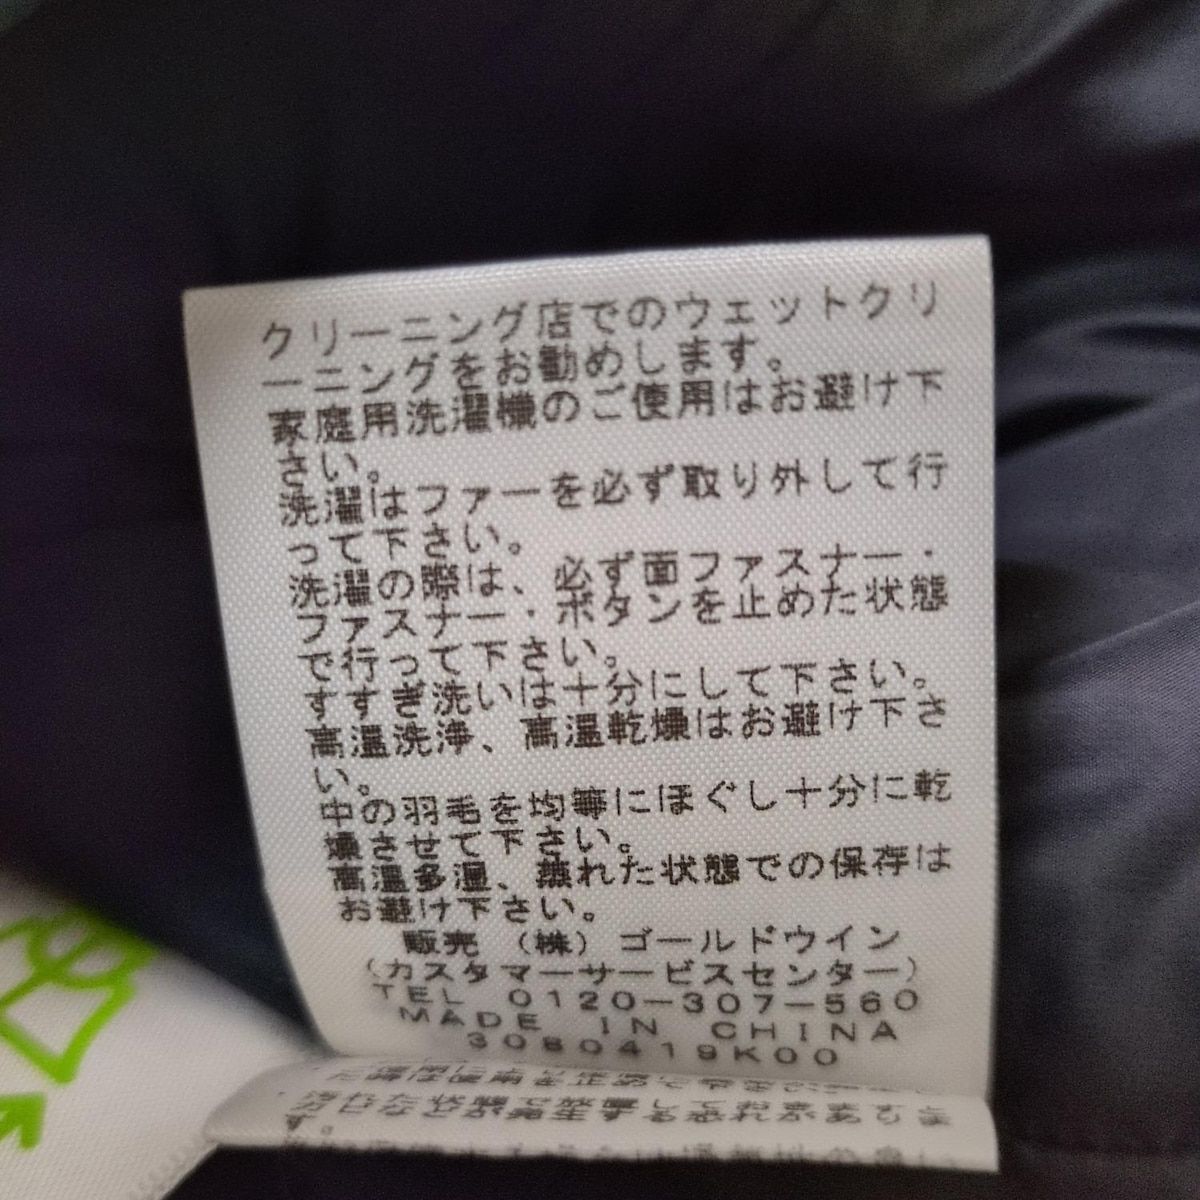 クリーニング店でのウェットクリ
ーニングをお勧めします。
家庭用洗濯機のご使用はお避け下
さい。
洗濯はファーを必ず取り外して行
って下さい。
洗濯の際は、必ず面ファスナー・
ファスナー・ボタンを止めた状態
で行って下さい。
すすぎ洗いは十分にして下さい。
高温洗浄、高温乾燥はお避け下さ
い。
中の羽毛を均等にほぐし十分に乾
燥させて下さい。
高温多湿、蒸れた状態での保存は
お避け下さい。
販売 (株) ゴールドウイン
(カスタマーサービスセンター)
TEL 0120-307-560
MADE IN CHINA
3080419K00
す。